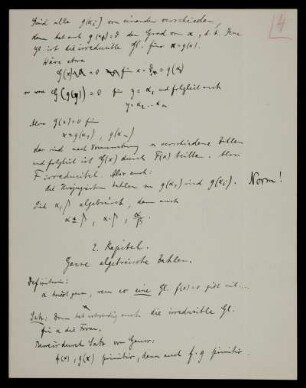 Sind alle g(αᵢ) von einander verschieden,
dann hat auch g(α) den Grad von α, d.h. die
Gl. ist die irreduzible Gl. für g(α).
Wäre etwa
G(x) = 0 für x = g(α)
G(g(y)) = 0 für y = α, und folglich auch
y = α₂ ... αₙ
Also G(x) = 0 für
x = g(α₁), g(αₙ)
das sind nach Voraussetzung n verschiedene Zahlen
und folglich ist G(x) durch F(x) teilbar. Also
F irreduzibel. Also auch:
die konjugierten Zahlen zu g(α) sind g(αᵢ). Norm!
Sind α, β algebraisch, dann auch
α ± β, α·β, α/β
2. Kapitel.
Ganze algebraische Zahlen.
Definition:
α heisst ganz, wenn es eine Gl. f(x) = 0 gibt mit
Satz: Dann hat notwendig auch die irreduzible Gl.
für α die Form.
Beweis durch Satz von Gauss:
f(x), g(x) primitiv, dann auch f·g primitiv
4